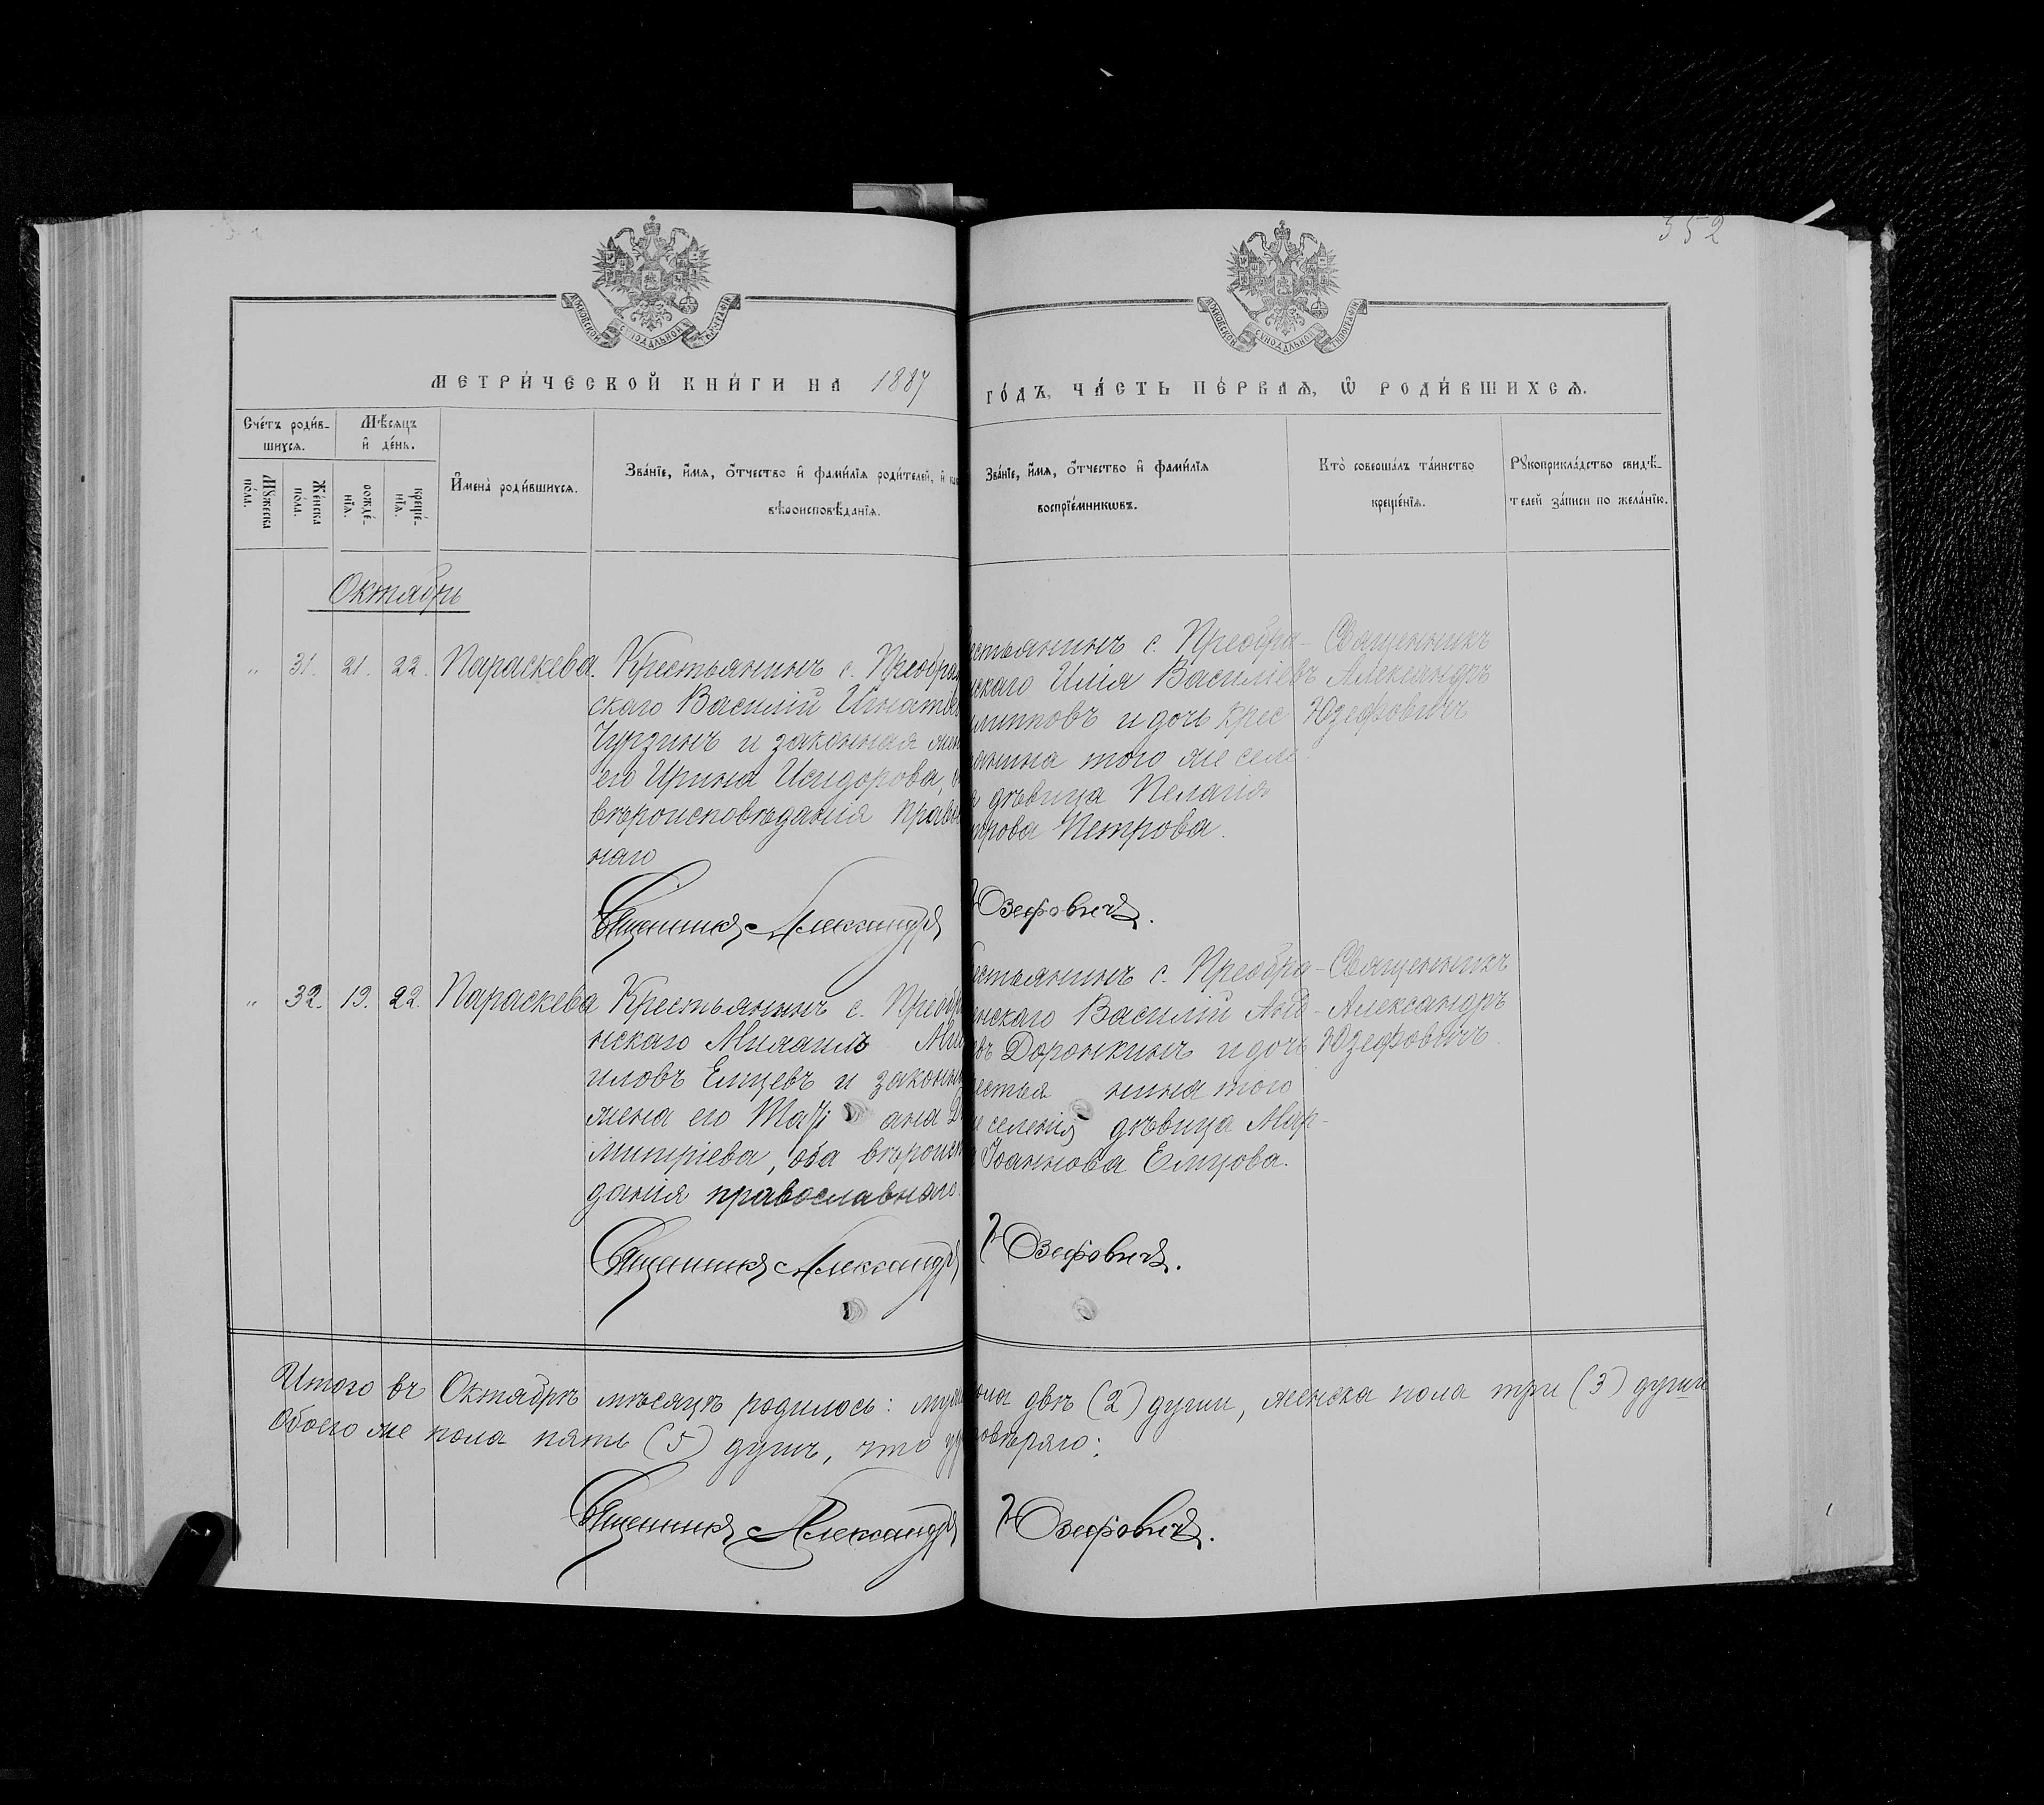 352
МОСКОВСКОЙ СУНОДАЛЬНОЙ ТИПОГРАФІИ
МОСКОВСКОЙ СУНОДАЛЬНОЙ ТИПОГРАФІИ
МЕТРИ́ЧЕСКОЙ КНИ́ГИ НА 1887
ГО́ДЪ, ЧА́СТЬ ПЕ́РВАѦ, Ѿ РОДИ́ВШИХСѦ.
Сче́тъ роди́в-
шихсѧ.
Мѣ́сѧцъ
и҆ де́нь.
Мꙋжеска по́ла.
Же́нска по́ла.
рожде́-нїѧ.
креще́-нїѧ.
И҆мена̀ роди́вшихсѧ.
Зва́нїе, и҆́мѧ, ѻ҆́тчество и҆ фами́лїѧ роди́телей, и҆
вѣроисповѣ́данїѧ.
Зва́нїе, и҆́мѧ, ѻ҆́тчество и҆ фами́лїѧ
воспрїе́мникѡвъ.
Кто̀ соверша́лъ та́инство
креще́нїѧ.
Рꙋкоприкла́дство свидѣ́-
телей за́писи по жела́нїю.
Октябрь
" 31. 21. 22. Параскева. Крестьянинъ с. Преобра
скаго Василій Игнатіев
Чурзинъ и законная жен
его Ирина Исидорова, о
вѣроисповѣданія право
наго
Священникъ Александръ
естьянинъ с. Преобра-
нскаго Илія Василіевъ
липповъ и дочь крес
янина того же селе
я дѣвица Пелагія
Петрова.
Юзефовичъ.
Священникъ
Александръ
Юзефовичъ
" 32. 19. 22. Параскева Крестьянинъ с. Преобр
нскаго Михаилъ Ми
иловъ Емцевъ и законн
жена его Тать ана Д
митріева, оба вѣроисп
данія православнаго.
Священникъ Александръ
естьянинъ с. Преобра-
енскаго Василій
евъ Доронкинъ и дочь
рестья нина того
е селенія дѣвица Мар-
Іоаннова Емцова.
Юзефовичъ.
Священникъ
Александръ
Юзефовичъ.
Итого въ Октябрѣ мѣсяцѣ родилось: муж пола двѣ (2) души, женска пола три (3) души
Обоего же пола пять (5) душъ, что удостовѣряю:
Священникъ Александръ Юзефовичъ.